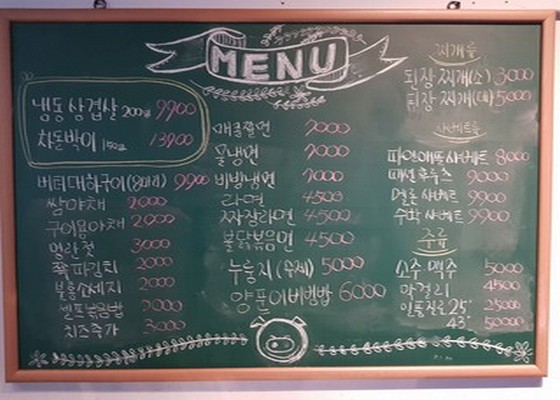 MENU
냉동삼겹살 200g 9900
차돌박이 150g 13900
버터대하구이(8마리) 9900
쌈야채 2000
구이용야채 2000
명란젓 3000
쪽파김치 2000
모듬소세지 2000
셀프볶음밥 2000
치즈추가 3000
매콤쫄면 7000
물냉면 7000
비빔냉면 7000
라면 4500
짜장라면 4500
불닭볶음면 4500
누룽지(수제) 5000
양푼이비빔밥 6000
찌개류
된장찌개(소) 3000
된장찌개(대) 5000
샤베트류
파인애플샤베트 8000
패션후르츠 9000
멜론샤베트 9900
수박샤베트 9900
주류
소주 맥주 5000
막걸리 4500
일품진로 25° 25000
43° 50000